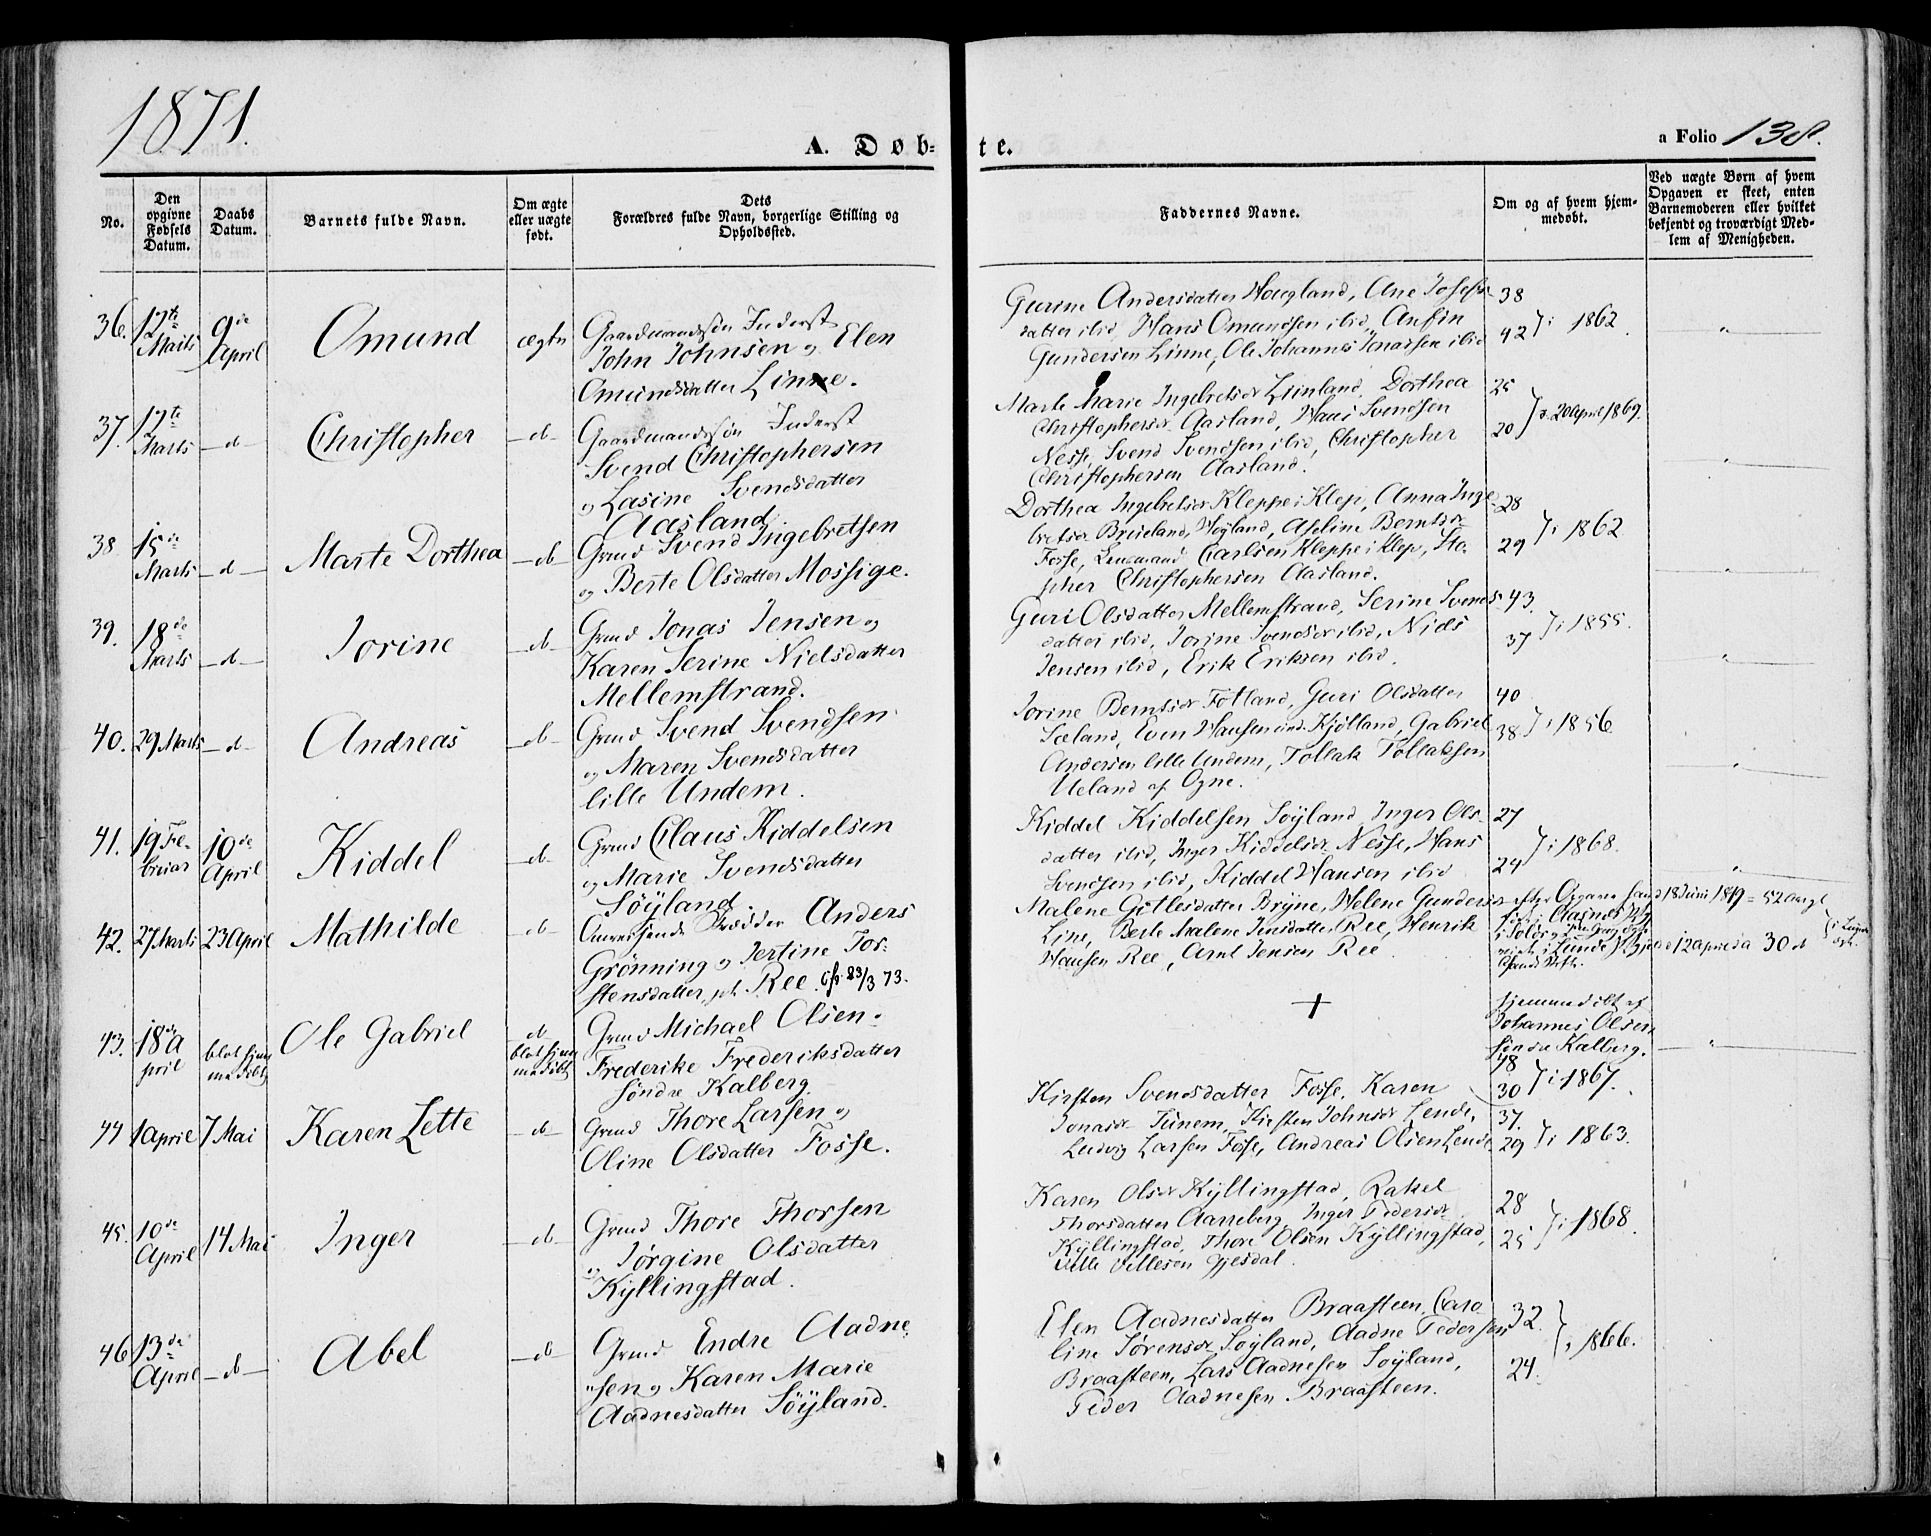 1871.
A. Døb-
te.
a Folio 138.
No.
Den opgivne Fødsels Datum.
Daabs Datum.
Barnets fulde Navn.
Om ægte eller uægte født.
Dets Forældres fulde Navn, borgerlige Stilling og Opholdssted.
Faddernes Navne.
Om og af hvem hjemmedøbt.
Ved uægte Børn af hvem Opgaven er skeet, enten Barnemoderen eller hvilket bekjendt og troværdigt Medlem af Menigheden.
36. 12te Marts 9de April Omund ægte
Gaardmandssøn Inderst
John Johnsen og Elen
Omundsdatter Linne.
Gurine Andersdatter Haugland, Ane Josefs- 38
datter ibid, Hans Omundsen ibid, Anfin
Gundersen Linne, Ole Johannes Jonassen ibid 42 } i 1862
37. 12te Marts -d- Christopher -d-
Gaardmandssøn Inderst
Svend Christophersen
og Lasine Svendsdatter
Aasland
Marte Marie Ingebretsdr Lunland, Dorthea 25
Christophersdr Aasland, Hans Svendsen
Nesse, Svend Svendsen ibid, Christopher 20 } d. 20 April 1869.
Christophersen Aasland.
38 15de Marts -d- Marte Dorthea -d-
Grmd Svend Ingebretsen
og Berte Olsdatter Mossige.
Dorthea Ingebretsdr Kleppe i Klep, Anna Inge 28
bretsdr Breieland, Høyland, Aseline Berntsdr
Fosse, Lensmand Carlsen Kleppe i Klep, Sto- 29 } i 1862
pher Christophersen Aasland.
39. 18de Marts -d- Jorine -d-
Grmd Jonas Jensen og
Karen Serine Nielsdatter
Mellemstrand.
Guri Olsdatter Mellemstrand, Serine Svends 43.
datter ibid, Jorine Svendsdr ibid, Niels
Jensen ibid, Erik Eriksen ibid. 37 } i 1855.
40. 29 Marts -d- Andreas -d-
Grmd Svend Svendsen
og Maren Svendsdatter
lille Undem.
Jorine Berntsdr Fotland, Guri Olsdatter 40
Sæland, Even Hansen Kjølland, Gabriel 38 } i 1856
Andersen lille Undem, Tollak Tollaksen
Ueland af Ogne.
41. 19 Februar 10de April Kiddel -d-
Grmd Claus Kiddelsen
og Marie Svendsdatter
Søyland
Kiddel Kiddelsen Søyland, Inger Ols- 27
datter ibid, Inger Kiddelsdr Nesse, Hans
Svendsen ibid, Kiddel Hansen ibid 24 } i 1868.
42. 27 Marts 23 April Mathilde -d-
Omreisende Skrædder Anders
Grønning og Jertine Tor-
stensdatter, pt. Ree. 23/3 73.
Malene Gitlesdatter Bryne, Helene Gundersdr
Line, Berte Malene Jensdatter Ree, Henrik
Hansen Ree, Arnt Jensen Ree
18 Juni 1819 = 52 Aar gl
30
43. 18de April blot hjemmedøbt Ole Gabriel -d- blot hjemmedøbt
Grmd Michael Olsen og
Frederike Frederiksdatter
søndre Kalberg
+
hjemmedøbt af
Johannes Olsen
søndre Kalberg.
48
30 } i 1867.
44 1 April 7 Mai Karen Lette -d-
Grmd Thore Larsen og
Oline Olsdatter Fosse.
Kirsten Svendsdatter Fosse, Karen
Jonasdr Tunem, Kirsten Johnsdr Lende, 37.
Ludvig Larsen Fosse, Andreas Olsen Lende 29 } i 1863.
45. 10de April 14 Mai Inger -d-
Grmd Thore Thorsen
og Jørgine Olsdatter
Kyllingstad.
Karen Olsdr Kyllingstad, Rakel 28
Thorsdatter Aarreberg, Inger Pedersdr
Kyllingstad, Thore Olsen Kyllingstad, 25 } i 1868
Villesen Gjesdal.
46 13de April -d- Abel -d-
Grmd Endre Aadne
sen og Karen Marie
Aadnesdatter Søyland.
Elen Aadnesdatter Braasteen, Caro 32
line Sørensdr Søyland, Aadne Pedersen
Braasteen, Lars Aadnesen Søyland, 24. } i 1866.
Peder Aadnesen Braasteen.